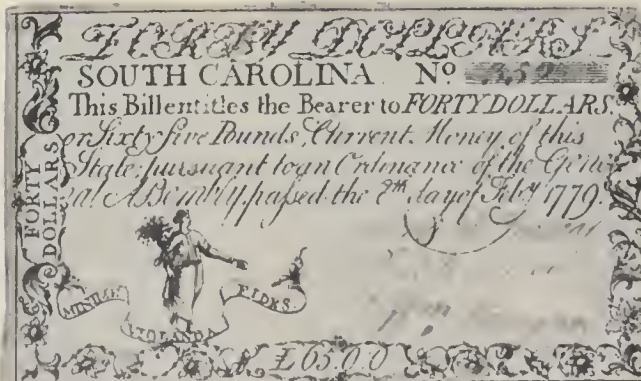 FORTY DOLLARS
SOUTH CAROLINA. Nº
This Bill entitles the Bearer to FORTY DOLLARS.
or Sixty five Pounds, Current Money of this
State; pursuant to an Ordinance of the Gener
al Assembly, passed the 8th day of Feby 1779.
FORTY
DOLLARS
MINIME VIOLANDA FIDES.
£65.0.0